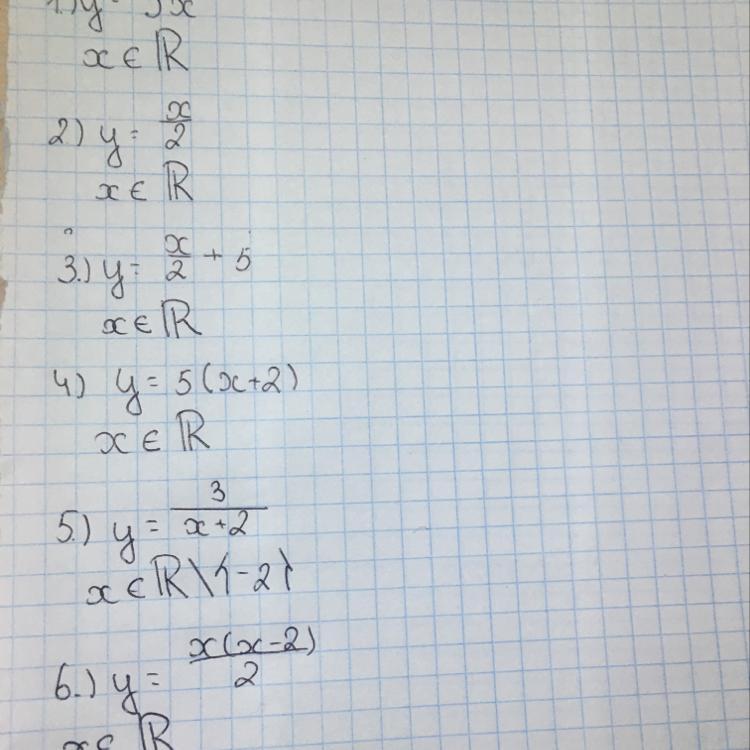 1.) y = 5x
x ∈ ℝ
2) y = x/2
x ∈ ℝ
3.) y = x/2 + 5
x ∈ ℝ
4) y = 5(x+2)
x ∈ ℝ
5.) y = 3/(x+2)
x ∈ ℝ\{-2}
6.) y = x(x-2)/2
x ∈ ℝ